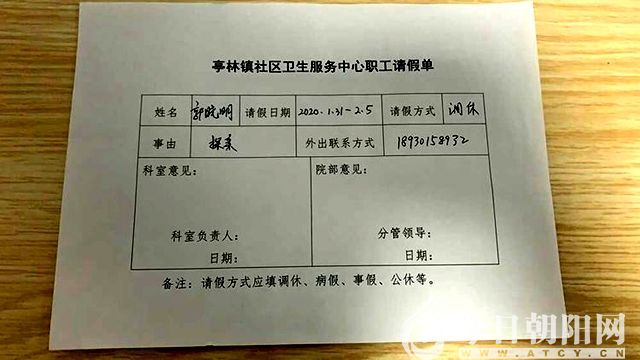 亭林镇社区卫生服务中心职工请假单
姓名 郭晓明 请假日期 2020.1.31-2.5 请假方式 调休
事由 探亲 外出联系方式 18930158932
科室意见: 院部意见:
科室负责人: 分管领导:
日期: 日期:
备注: 请假方式应填调休、病假、事假、公休等。
今日朝阳网
WWW.ATCY.CN